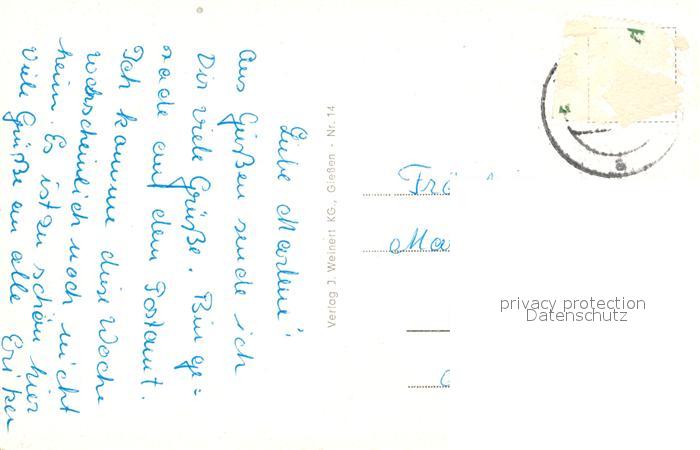 Liebe Marlene!
Aus Gießen sende ich
Dir viele Grüße. Bin ge=
rade auf dem Postamt.
Ich komme diese Woche
wahrscheinlich noch nicht
heim. Es ist zu schön hier
Viele Grüße an alle Erika
Verlag J. Weinert KG., Gießen - Nr. 14
Frö
Ma
privacy protection
Datenschutz